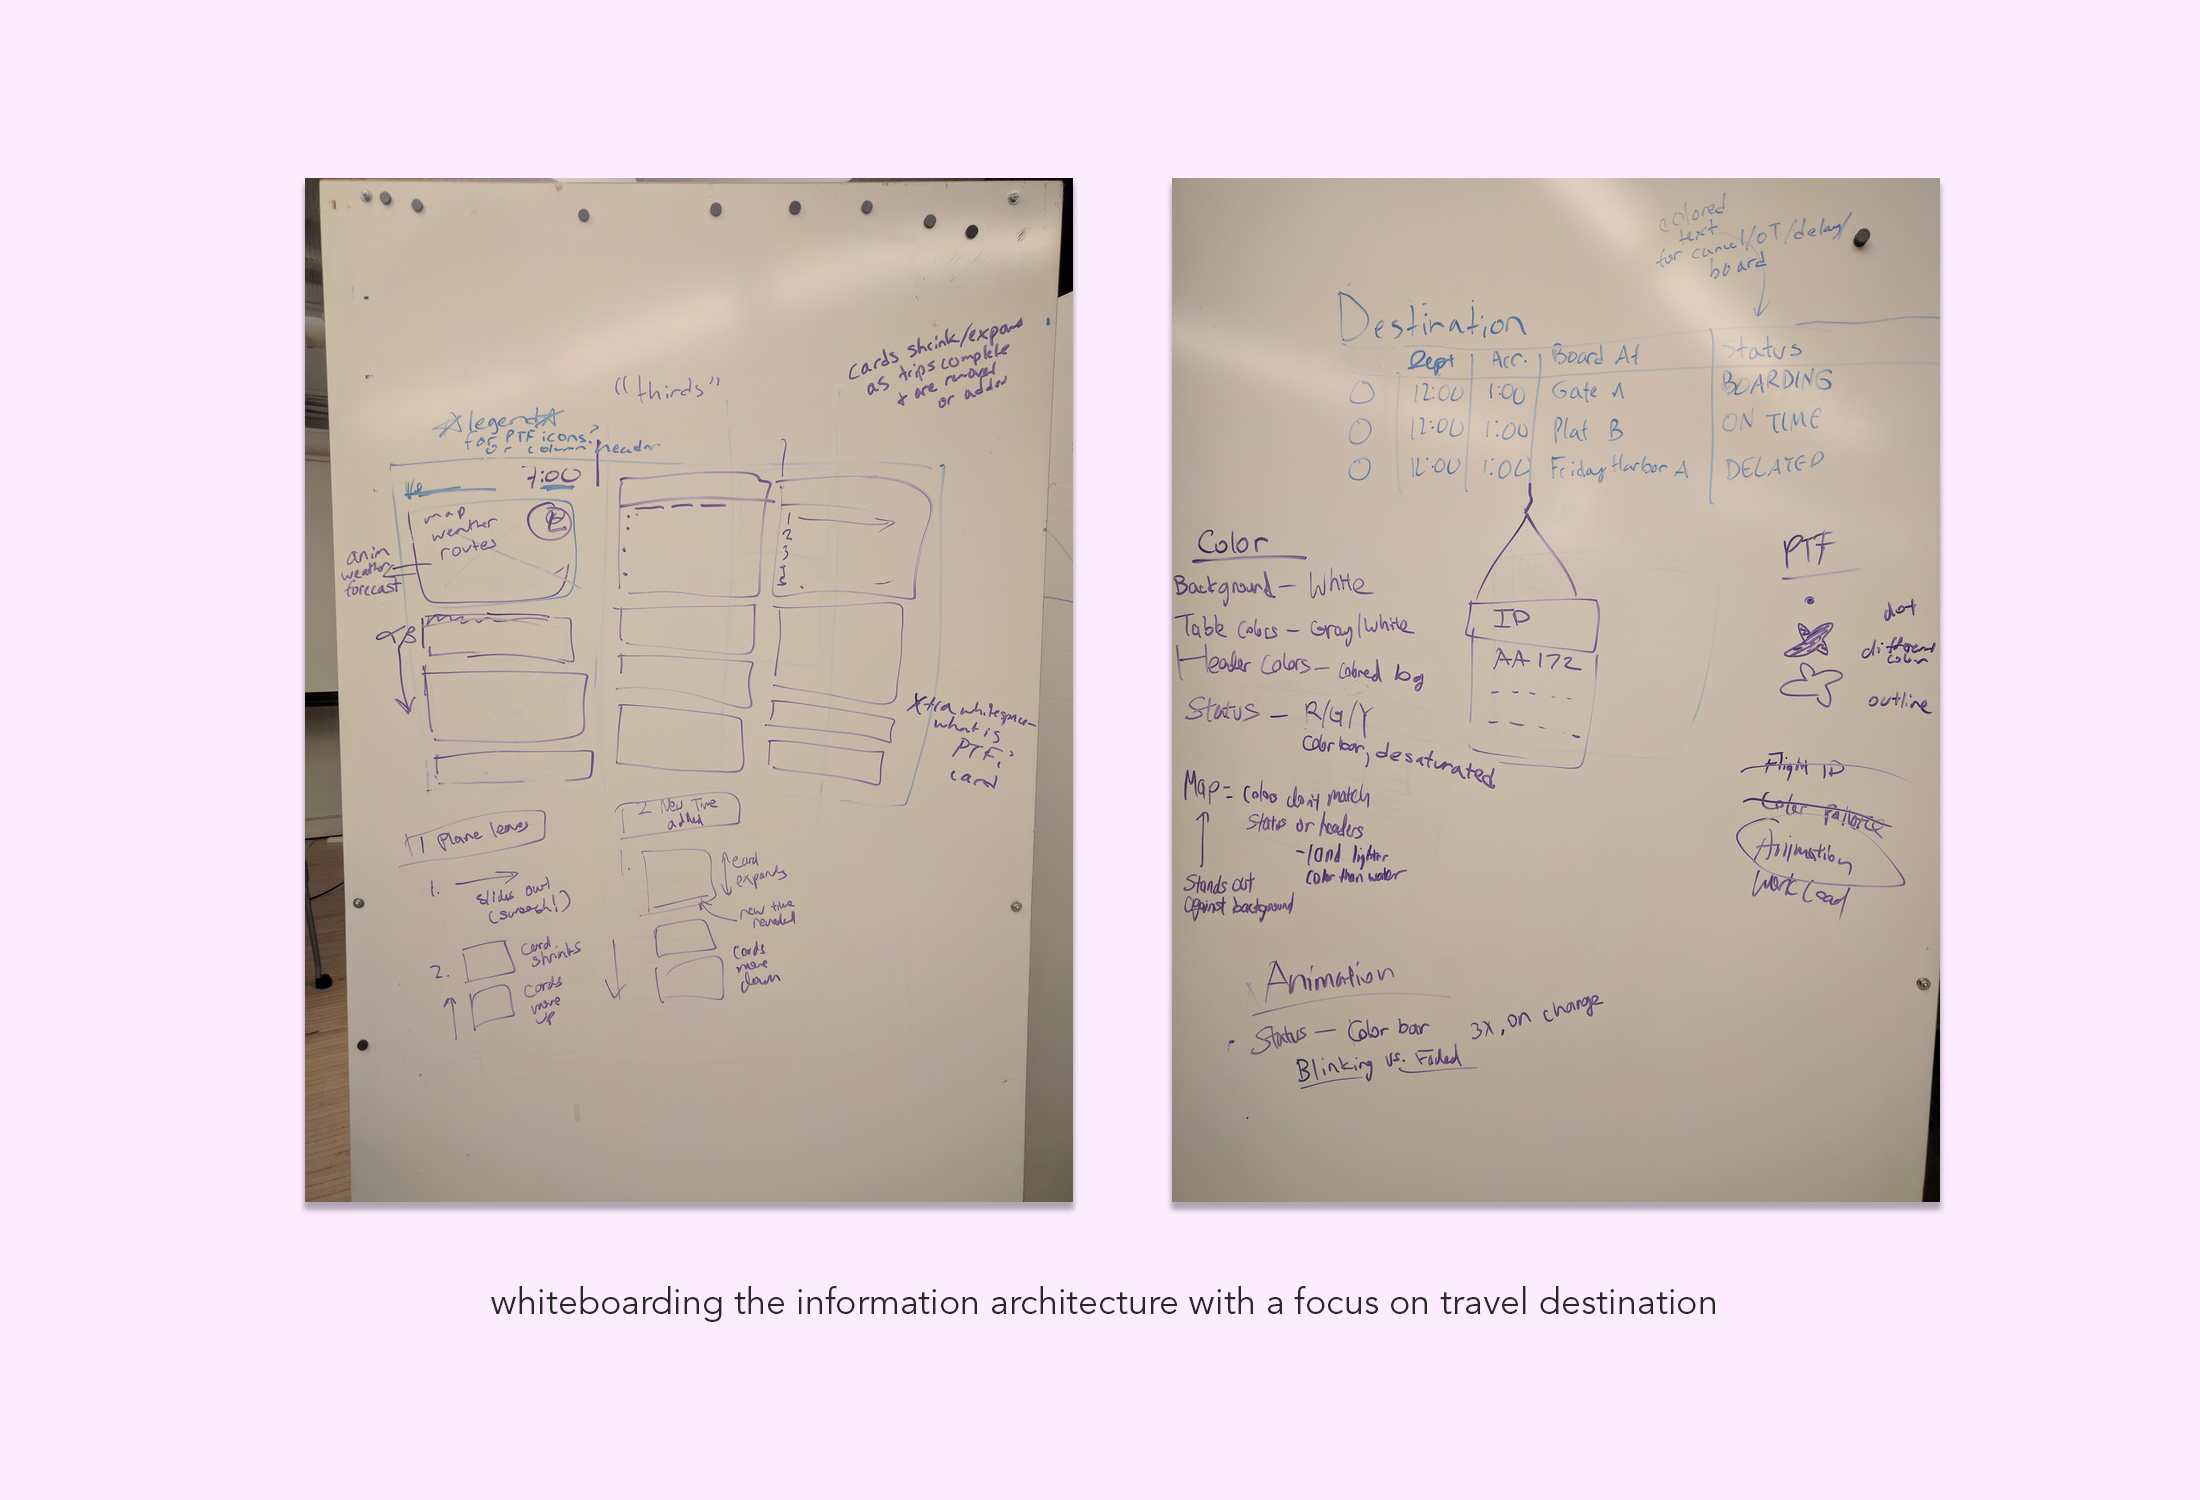 cards shrink/expand
as trips complete
& are removed
or added
"thirds"
legend
for PTF icons?
or column header
7:00
map
weather
routes
anim
weather
forecast
1
2
3
4
5
Xtra whitespace-
what is
PTF?
card
1 Plane leaves
1.
slides out
(swoosh!)
2.
card
shrinks
cards
move
up
2 New Time
added
1.
card
expands
new time
revealed
cards
move
down
colored
text
for cancel/OT/delay/
board
Destination
Dept Arr. Board At Status
12:00 1:00 Gate A BOARDING
12:00 1:00 Plat B ON TIME
12:00 1:00 Friday Harbor A DELAYED
Color
Background - White
Table colors - Gray/White
Header Colors - colored bg
Status - R/G/Y
Color bar, desaturated
Map = Colors don't match
Status or headers
- land lighter
color than water
Stands out
against background
ID
AA172
PTF
dot
different
color
outline
Flight ID
Color palette
Animation
Work Load
Animation
Status - Color bar 3x, on change
Blinking vs. Faded
whiteboarding the information architecture with a focus on travel destination